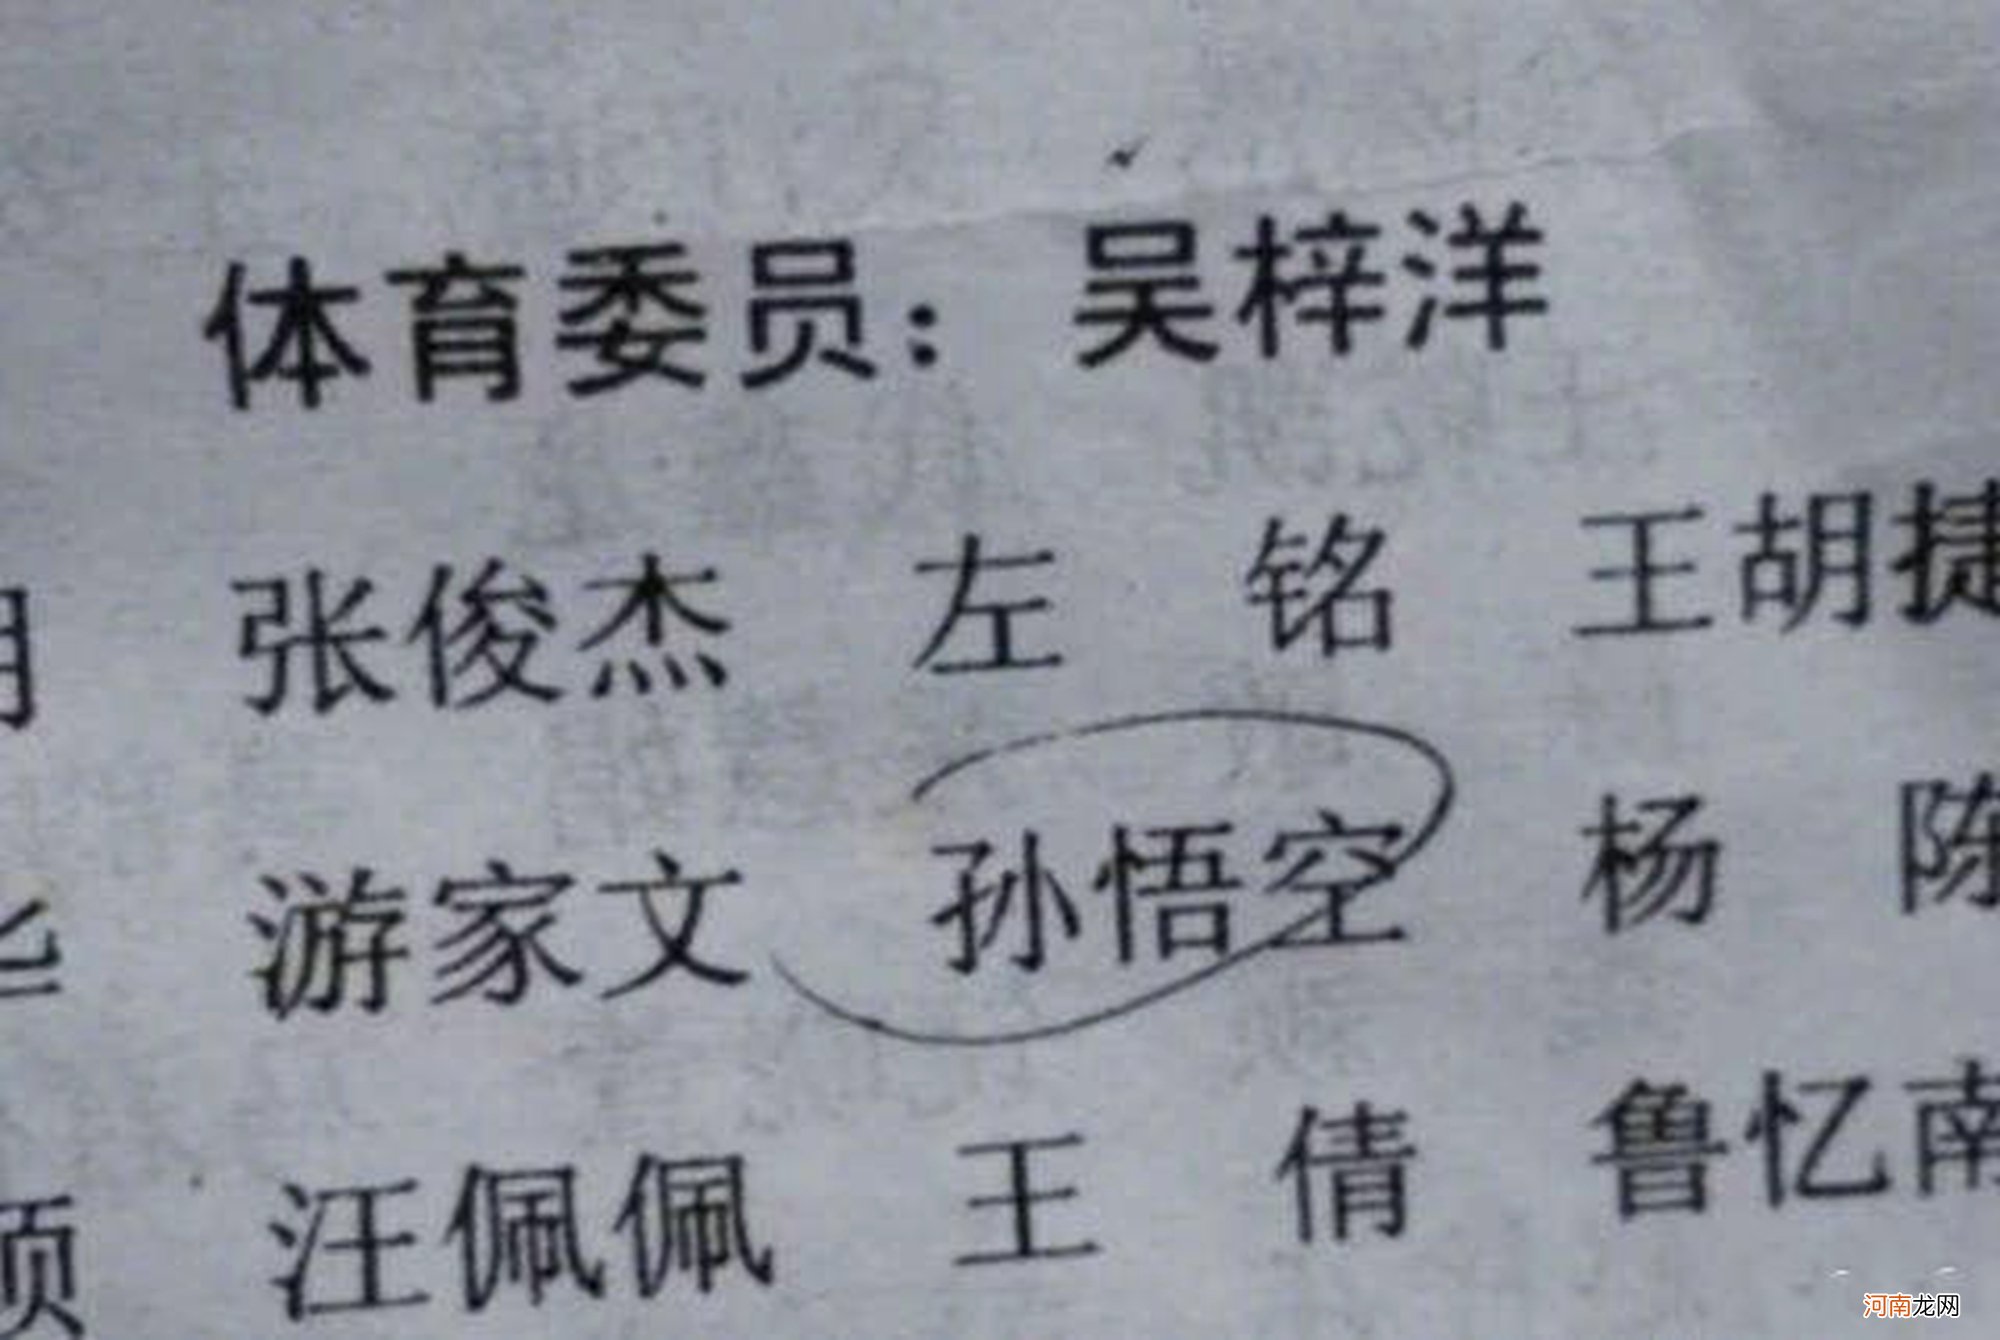 体育委员：吴梓洋
张俊杰 左 铭 王胡捷
游家文 孙悟空 杨 陈
汪佩佩 王 倩 鲁忆南
河南龙网